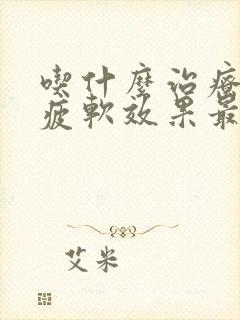 喫什麼治療
疲軟效果最
艾米